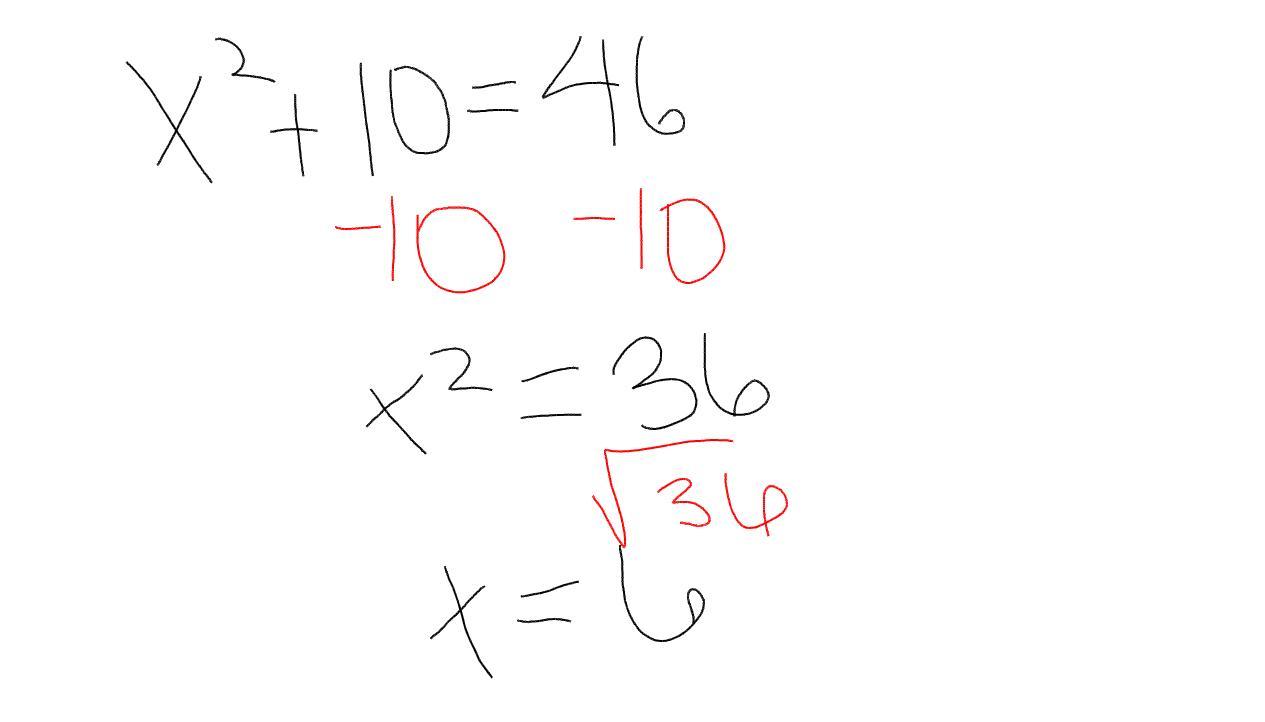 x² + 10 = 46
-10 -10
x² = 36
√36
x = 6